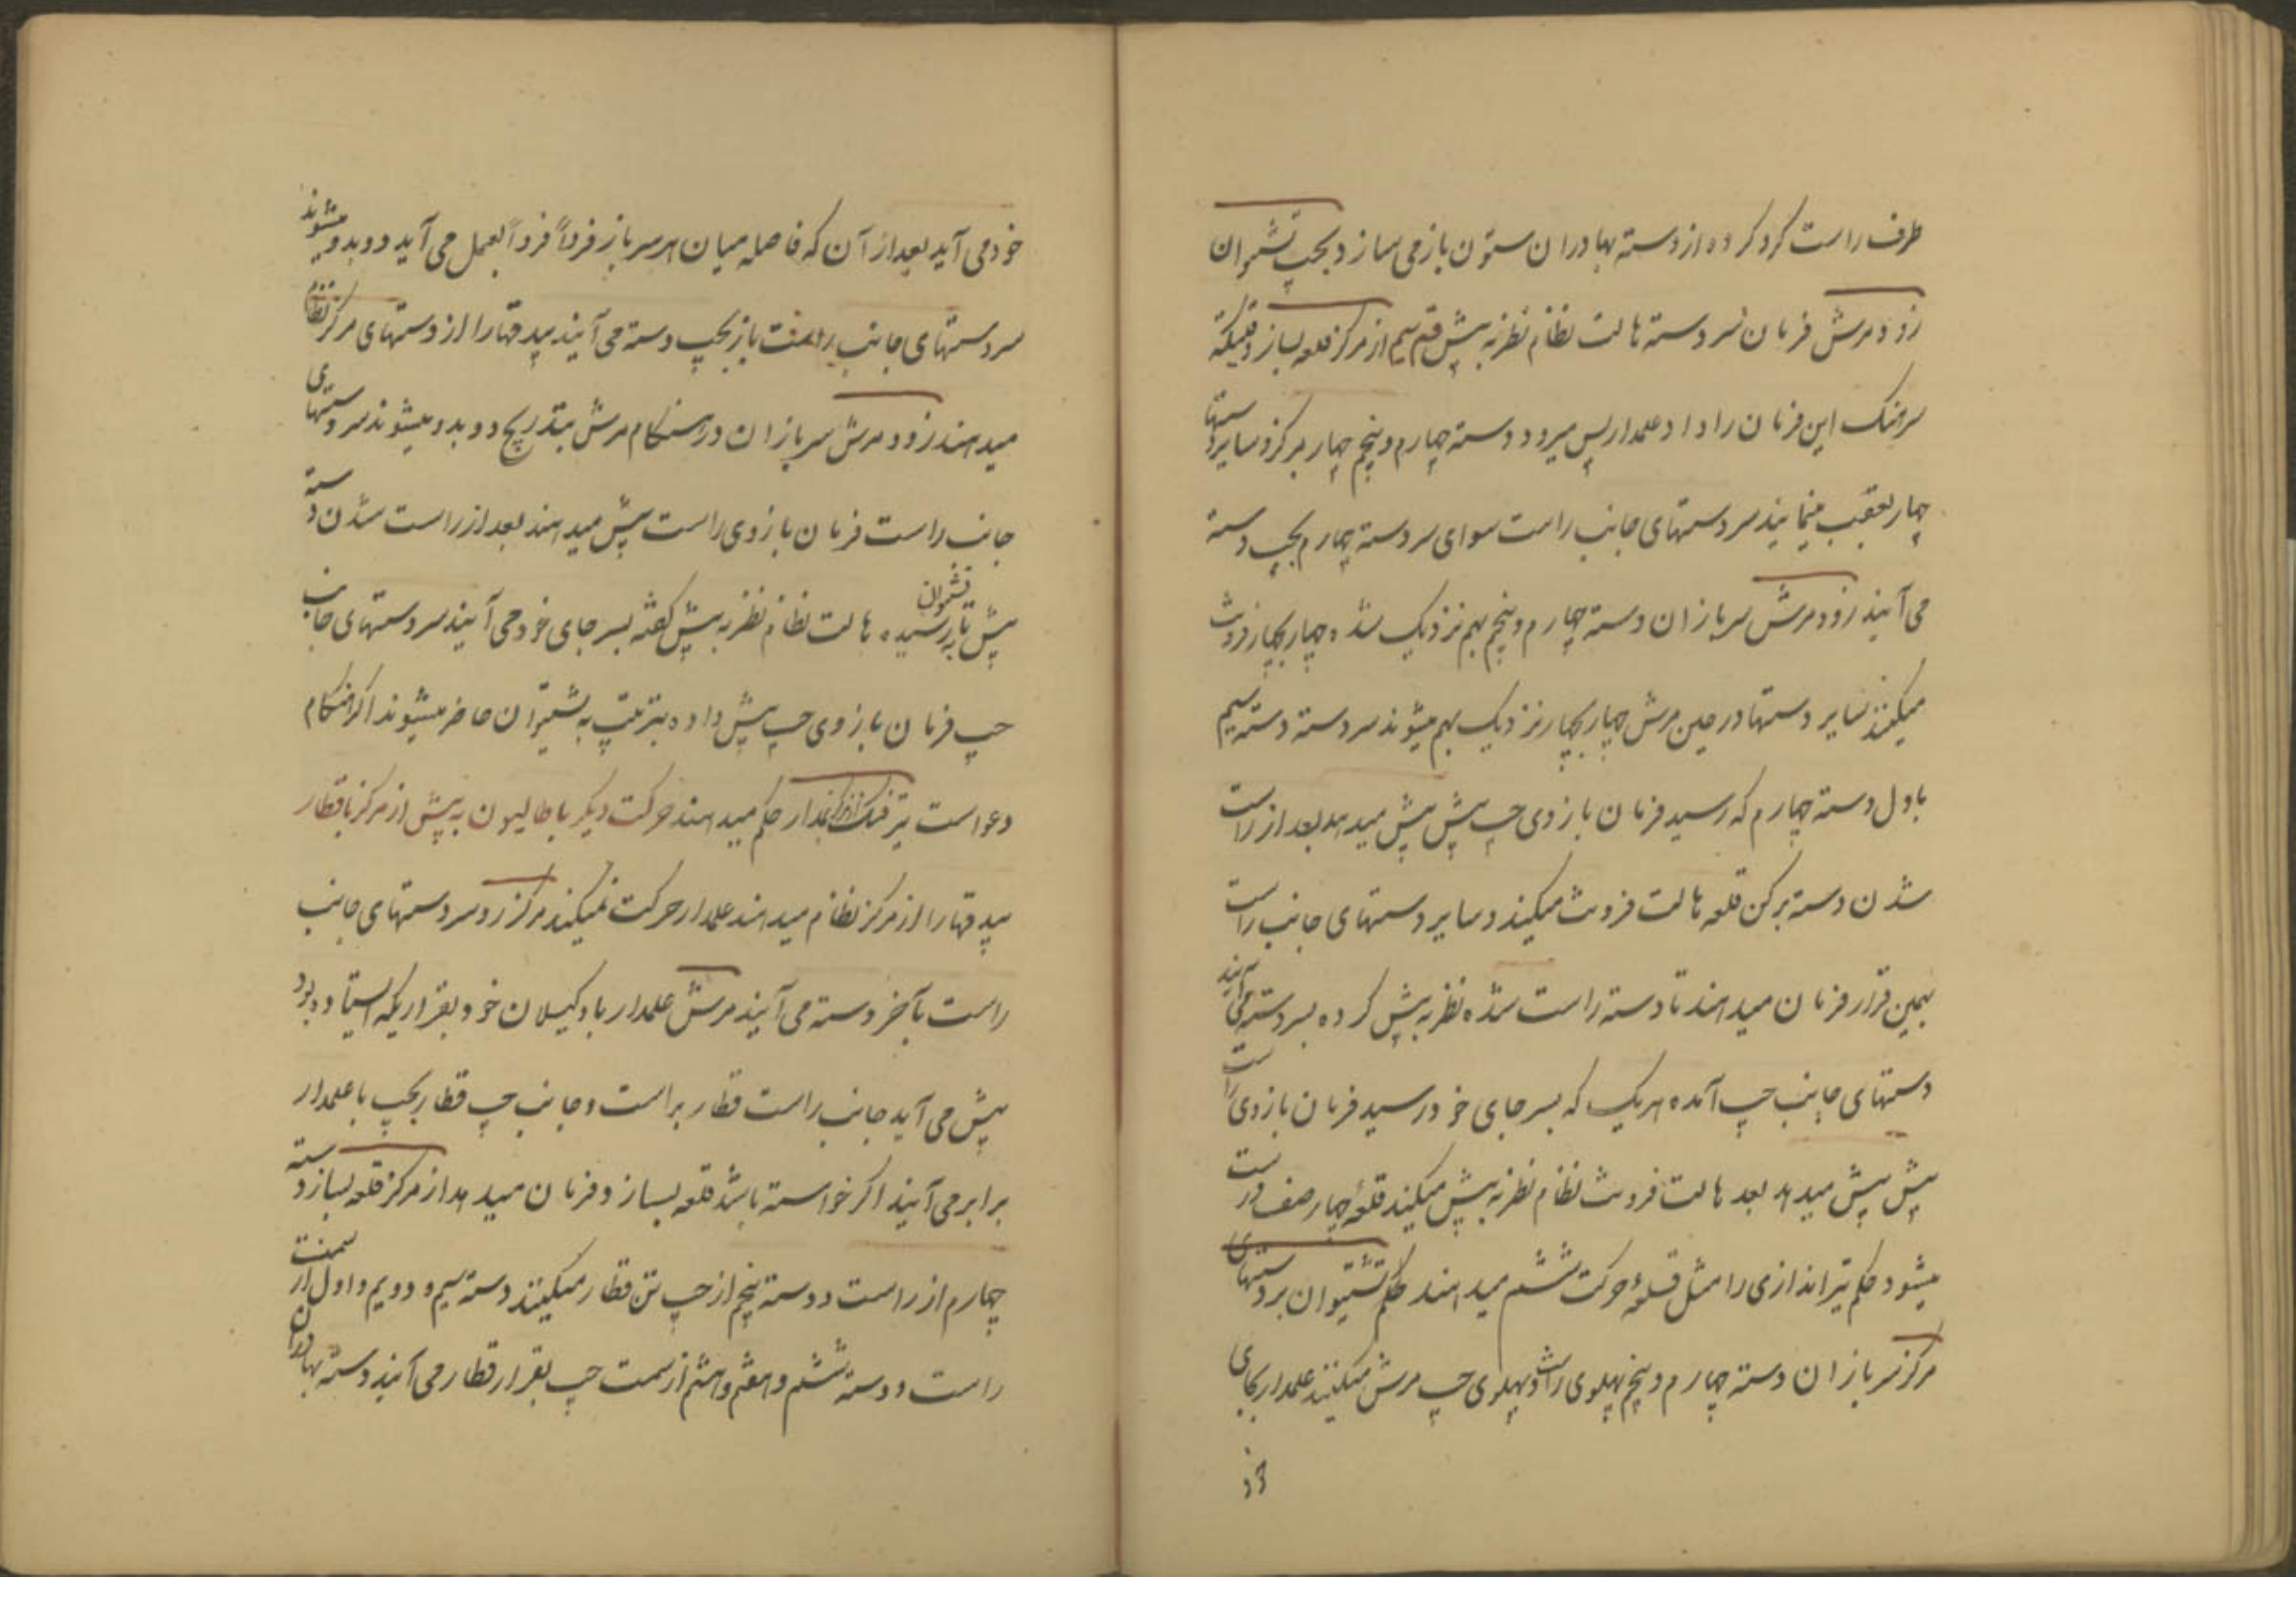 طرف راست کرد کرده از دسته بهادران ستون باز می سازد بچپ تشیوان
زود مرش فرمان سر دسته هالت نظام نظر به پیش قدم سیم از مرکز قلعه بساز وقتیکه
سرهنک این فرمان را داد علمدار پس میرود دسته چهارم و پنجم چهار بمرکز و سایر دستها
چهار بعقب مینمایند سر دستهای جانب راست سوای سر دسته چهارم بچپ دسته
می آیند زود مرش سربازان دسته چهارم و پنجم بهم نزدیک شده چهار بچهار فرونت
میکنند سایر دستها در حین مرش چهار بچهار نزدیک بهم میشوند سر دسته دسته سیم
باول دسته چهارم که رسید فرمان بازوی چپ پیش پیش میدهد بعد از راست
شدن دسته برکن قلعه هالت فرونت میکنند و سایر دستهای جانب راست
بهمین قرار فرمان میدهند تا دسته راست شده نظر به پیش کرده بسر دسته می آیند
دستهای جانب چپ آمده هر یک که بسر جای خود رسید فرمان بازوی راست
پیش پیش میدهد بعد هالت فرونت نظام نظر به پیش میکنند قلعهٔ چهار صف درست
میشود حکم تیراندازی را مثل قلعهٔ حرکت ششم میدهند حکم تشیوان بر دستهای
مرکز سربازان دسته چهارم و پنجم پهلوی راست و پهلوی چپ مرش میکنند علمدار بجای
خود می آید بعد از آن که فاصله میان هر سرباز فرداً فرداً بعمل می آید دو بدو میشوند
سر دستهای جانب راست باز بچپ دسته می آیند بیدقها را از دستهای مرکز نظام
میدهند زود مرش سربازان در هنکام مرش بتدریج دو بدو میشوند سر دستهای
جانب راست فرمان بازوی راست پیش میدهند بعد از راست شدن دسته
پیش تا به تشیوان رسیده هالت نظام نظر به پیش کفته بسر جای خود می آیند سر دستهای جانب
چپ فرمان بازوی چپ پیش داده بترتیب به تشیوان حاضر میشوند اکر هنکام
دعواست حکم میدهند حرکت دیکر باطالیون به پیش از مرکز با قطار
بیدقها را از مرکز نظام میدهند علمدار حرکت نمیکند مرکز رو سر دستهای جانب
راست بآخر دسته می آیند مرش علمدار با وکیلان خود بقراریکه ایستاده بود
پیش می آید جانب راست قطار براست و جانب چپ قطار بچپ با علمدار
برابر می آیند اکر خواسته باشد قلعه بسازد فرمان میدهد از مرکز قلعه بساز دسته
چهارم از راست و دسته پنجم از چپ تن قطار میکنند دسته سیم و دویم و اول از سمت
راست و دسته ششم و هفتم و هشتم از سمت چپ بقرار قطار می آیند دسته بهادران